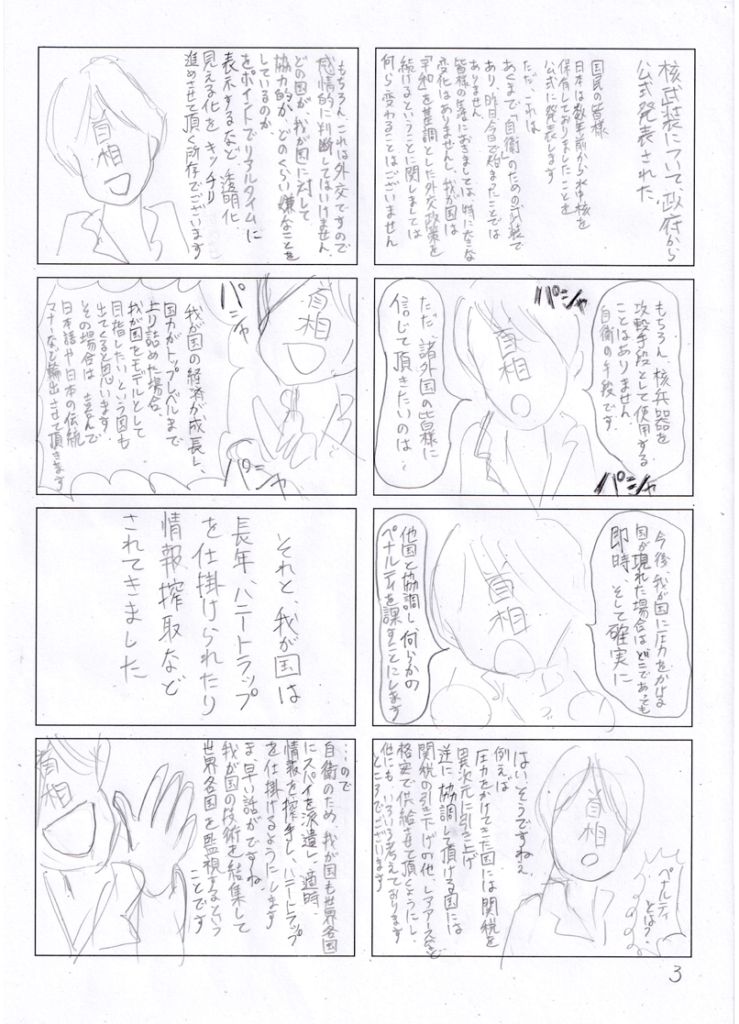 核武装について、政府から
公式発表された、
国民の皆様
日本は数年前から水中核を
保有しておりましたことを
公式に発表します
ただ、これは
あくまで「自衛」のための武装で
あり、昨日今日で始まったことでは
ありません
皆様の生活におきましては、特に大きな
変化はありませんし、我が国は
「平和」を基調とした外交政策を
続けるということに関しましては
何ら変わることはございません
もちろん、核兵器を
攻撃手段として使用する
ことはありません
自衛の手段です
パシャ
首相
ただ、諸外国の皆様に
信じて頂きたいのは…
パシャ
今後、我が国に圧力をかけよ
国が現れた場合はどこであっても
即時、そして確実に
首相
他国と協調し、何らかの
ペナルティを課すことにします
ペナルティ
とは？
首相
はい、そうですねぇ
例えば
圧力をかけてきた国には関税を
異次元に引き上げ
逆に協調して頂ける国には
関税の引き下げの他、レアアースなど
格安で供給させて頂くようにし、
他にもいろいろ考えております
ところでございます
もちろん、これは外交ですので
感情的に判断してはいけません、
どの国が我が国に対して
協力的か、どのくらい嫌なことを
しているのか、
をポイントでリアルタイムに
表示するなど透明化
見える化をキッチリ
進めさせて頂く所存でございます
首相
首相
パシャ
我が国の経済が成長し、
国力がトップレベルまで
上り詰めた場合、
我が国をモデルとして
目指したいという国も
出てくると思います
その場合は喜んで
日本語や日本の伝統
マナーなど輸出させて頂きます
パシャ
それと、我が国は
長年、ハニートラップ
を仕掛けられたり
情報搾取など
されてきました
…ので
自衛のため、我が国も世界各国
にスパイを派遣し、適時、
情報を搾手し、ハニートラップ
を仕掛けるようにします
ま、早い話がですね、
我が国の技術を結集して
世界各国を監視するという
ことです
首相
3